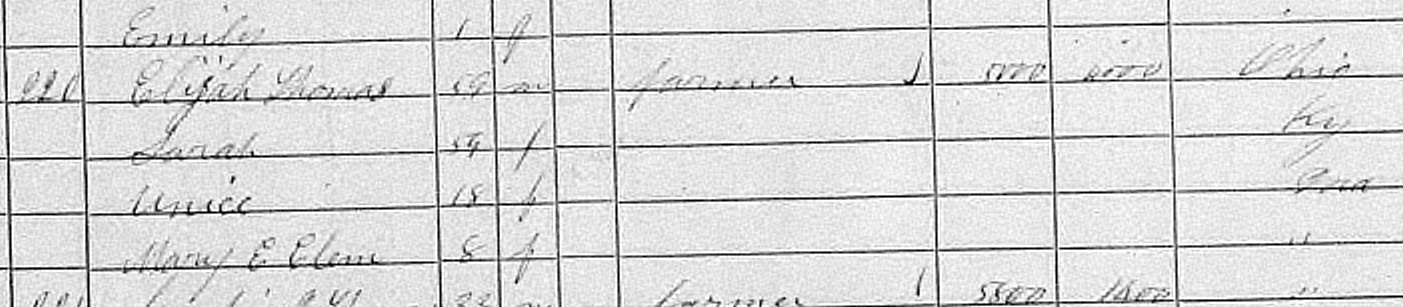 Emily 1 f
220 Elijah Thomas 59 m farmer 1 5000 Ohio
Sarah 59 f Ky
Unice 18 f Ina
Mary E Elem 8 f "
221 33 m farmer 1 5500 "